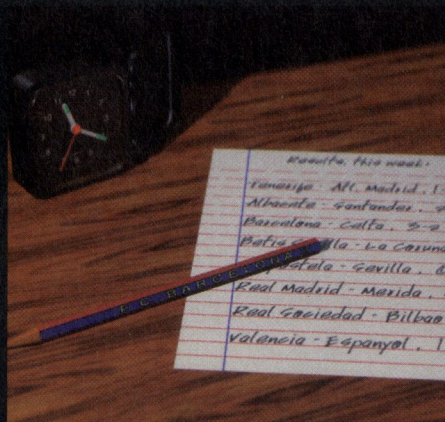 Results, this week:
Tenerife - Atl. Madrid, 1
Albacete - Santander,
Barcelona - Celta, 5-2
Betis - La Coruna
- Sevilla,
Real Madrid - Merida,
Real Sociedad - Bilbao
Valencia - Espanyol, 1
F.C. BARCELONA